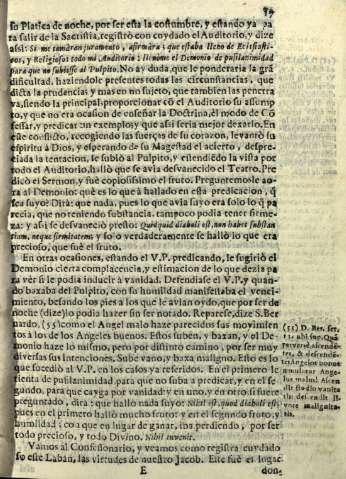 su Platica de noche, por ser esta la costumbre, y estando ya pa
ra salir de la Sacristia, registrò con cuydado el Auditorio, y dize
assi: Si me tomáran juramento, afirmára: que estaba lleno de Eclesiasti-
cos, y Religiosos todo mi Auditorio: llenòme el Demonio de pusilanimidad
para que no subiesse al Pulpito. No ay duda, que le ponderaria la grã
dificultad, haziendole presentes todas las circunstancias, que
dicta la prudencias y mas en no sujeto, que tambien las penetra
va, siendo la principal, proporcionar cõ el Auditorio su assump
to, y que no era ocasion de enseñar la Doctrina, el modo de Cõ
fessar, y predicar un exemplo; y que assi seria mejor dexarlo. En
este conflicto, recogiendo las fuerças de su corazon, levantò su
espiritu à Dios, y esperando de su Magestad el acierto, despre-
ciada la tentacion, se subiò al Pulpito, y estendiẽdo la vista por
todo el Auditorio, hallò que se avia desvanecido el Teatro. Pre
dicò el Sermon, y fuè copiosissimo el fruto. Preguntemosle ao-
ra al Demonio: què es lo que à hallado en esta predicacion, q̃
sea suyo? Dirà: que nada, pues lo que avia suyo era solo lo q̃ pa
recia, que no teniendo substancia, tampoco podia tener firme-
za: y assi se desvaneciò presto: Quidquid diaboli est, non habet substan
tiam, neque firmitatem: y solo verdaderamente se hallò lo que era
precioso, que fuè el fruto.
En otras ocasiones, estando el V.P. predicando, le sugiriò el
Demonio cierta complacencia, y estimacion de lo que dezia pa
ra vèr si le podia inducir à vanidad. Defendiase el V.P. y quan-
do baxaba del Pulpito, con su humildad manifestaba el venci-
miento, besando los pies à los que le avian oydo, que por ser de
noche (dize) lo podia hazer sin ser notado. Reparese, dize S. Ber
nardo, (55) como el Angel malo haze parecidos sus movimien
tos à los de los Angeles buenos. Estos suben, y baxan, y el De
monio haze lo mismo, pero por distinto camino, y por ser muy
diversas sus intenciones. Sube vano, y baxa maligno. Esto es lo
que sucediò al V.P. en los casos ya referidos. En el primero le
tienta de pusilanimidad para que no suba à predicar, y en el se
gundo, para que cayga por vanidad: y en uno, y en otro si fuere
preguntado, dirà: que hallò nada suyo: Nihil est, quod diaboli est:
pues en el primero hallò mucho fruto: y en el segundo fruto, y
humildad: cosa que en lugar de ganar, iba perdiendo, por ser
todo precioso, y todo Divino. Nihil invenit.
Vamos al Confessonario, y veamos como registra cuydado
so este Laban, las virtudes de nuestro Jacob. Este fuè el lugar
E
don-
(55) D. Ber. ser.